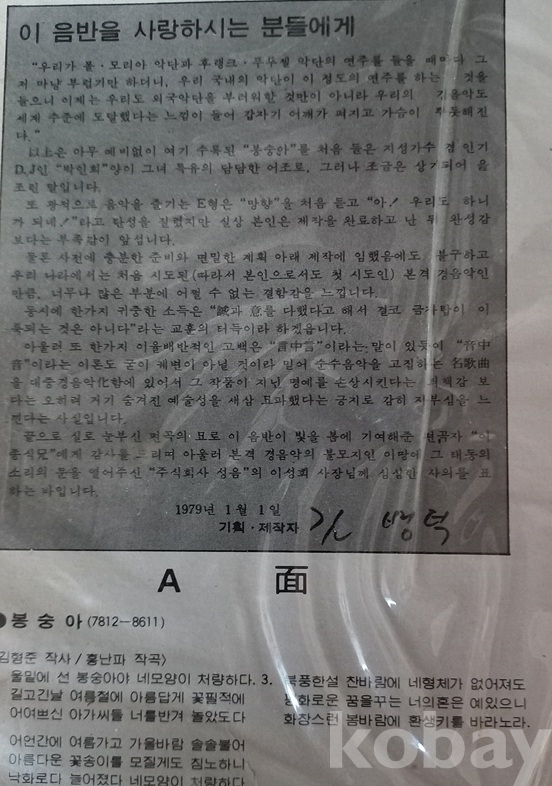 이 음반을 사랑하시는 분들에게
“우리가 폴·모리아 악단과 후랭크·푸루쎌 악단의 연주를 들을 때마다 그
저 마냥 부럽기만 하더니, 우리 국내의 악단이 이 정도의 연주를 하는 것을
들으니 이제는 우리도 외국악단을 부러워할 것만이 아니라 우리의 음악도
세계 수준에 도달했다는 느낌이 들어 갑자기 어깨가 펴지고 가슴이 뿌듯해진
다.”
以上은 아무 예비없이 여기 수록된 “봉숭아”를 처음 들은 지성가수 겸 인기
D.J인 “박인희”양이 그녀 특유의 담담한 어조로, 그러나 조금은 상기되어 읊
조린 말입니다.
또 광적으로 음악을 즐기는 E형은 “망향”을 처음 듣고 “아! 우리도 하니
까 되네!”라고 탄성을 질렀지만 실상 본인은 제작을 완료하고 난 뒤 완성감
보다는 부족감이 앞섭니다.
물론 사전에 충분한 준비와 면밀한 계획 아래 제작에 임했음에도 불구하고
우리 나라에서는 처음 시도된(따라서 본인으로서도 첫 시도인) 본격 경음악인
만큼, 너무나 많은 부분에 어쩔 수 없는 결함감을 느낍니다.
동시에 한가지 귀중한 소득은 “誠과 意를 다했다고 해서 결코 금자탑이 이
룩되는 것은 아니다”라는 교훈의 터득이라 하겠읍니다.
아울러 또 한가지 이율배반적인 고백은 “言中言”이라는 말이 있듯이 “音中
音”이라는 이론도 굳이 궤변이 아닐 것이라 믿어 순수음악을 고집하는 名歌曲
을 대중경음악化함에 있어서 그 작품이 지닌 명예를 손상시킨다는 감 보
다는 오히려 거기 숨겨진 예술성을 새삼 표파했다는 긍지로 감히 자부심을 느
낀다는 사실입니다.
끝으로 실로 눈부신 편곡의 묘로 이 음반이 빛을 봄에 기여해준 편곡자 “이
충식兄”에게 감사를 드리며 아울러 본격 경음악의 불모지인 이땅에 그 태동의
소리의 문을 열어주신 “주식회사 성음”의 이성희 사장님께 심심한 사의를 표
하는 바입니다.
1979년 1월 1일
기획·제작자
A 面
●봉숭아 (7812-8611)
김형준 작사 / 홍난파 작곡〉
울밑에 선 봉숭아야 네모양이 처량하다.
길고긴날 여름철에 아름답게 꽃필적에
어여쁘신 아가씨들 너를반겨 놀았도다
어언간에 여름가고 가을바람 솔솔불어
아름다운 꽃송이를 모질게도 침노하니
낙화로다 늘어졌다 네모양이 처량하다
3. 북풍한설 찬바람에 네형체가 없어져도
평화로운 꿈을꾸는 너의혼은 예있으니
화창스런 봄바람에 환생키를 바라노라.
kobay